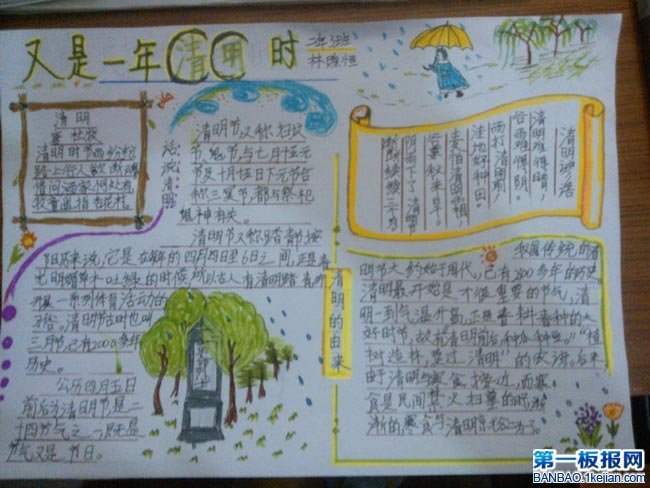 又是一年清明时
二年3班
清明
清明时节雨纷纷
路上行人欲断魂
借问酒家何处有
牧童遥指杏花村。
话说清明
清明节又称扫坟
节、鬼节与七月十五元
节及十月十五日下元节合
称三冥节,都与祭祀
鬼神有关。
清明节又称踏青节,按
阳历来说,它是在每年的四月四日至6日之间,正是春
光明媚草木吐绿的时候,所以古人有清明踏青,并
开展一系列体育活动的
习俗。清明节古时也叫
三月节,已有2000多年
历史。
公历四月五日
前后为清明节是二
十四节气之一,既是
节气又是节日。
清明谚语
清明难得晴,
谷雨难得阴。
雨打清明前,
洼地好种田。
麦怕清明霜,
谷要秋来旱。
阴雨下了清明节
断断续续三个月
清明的由来
我国传统的清
明节大约始于周代,已有2800多年的历史。
清明最开始是一个很重要的节气,清
明一到气温升高,正是春耕春种的大
好时节,故有“清明前后,种瓜种豆”。“植
树造林,莫过清明”的农谚。后来
由于清明与寒食接近,而寒
食是民间禁火扫墓的日子,渐
渐的,寒食与清明就合二为一了。
第一板报网
BANBAO.1kejian.com